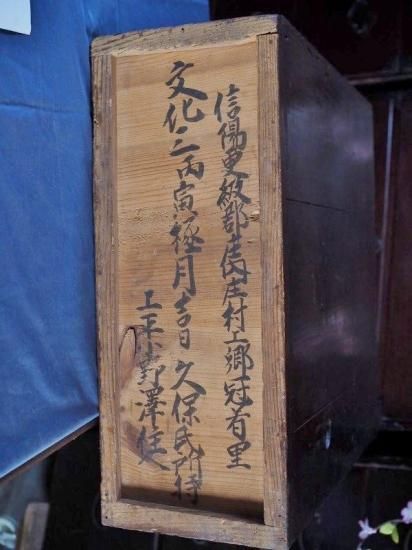 信陽更級郡庄村上郷冠着里
文化三丙寅極月吉日久保氏所持
工野澤住